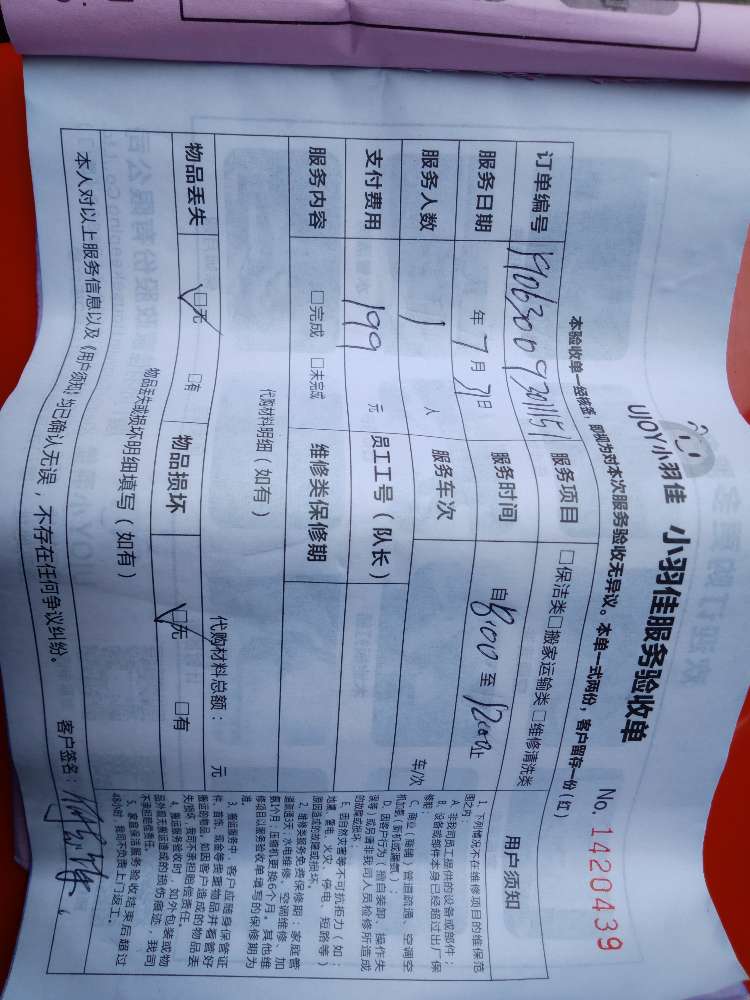 UJOY小羽佳 小羽佳服务验收单
No. 1420439
本验收单一经核签，即视为对本次服务验收无异议。本单一式两份，客户留存一份（红）
订单编号
服务项目 □保洁类□搬家运输类□维修清洗类
服务日期 年 7 月 31 日
服务时间 自 8:00 至 12:00 止
服务人数 1 人
服务车次 车/次
支付费用 199 元
员工工号（队长）
服务内容 □完成 □未完成
维修类保修期
代购材料明细（如有）
代购材料总额： 元
物品丢失 □无 □有
物品损坏 □无 □有
物品丢失或损坏明细填写（如有）
本人对以上服务信息以及《用户须知》均已确认无误，不存在任何争议纠纷。
客户签名：
用户须知
1、下列情况不在维修项目的维保范
围之内：
A、非我司员工提供的设备或部件；
B、设备或部件本身已经超过出厂保
修期；
C、商业（商铺）管道疏通、空调空
机加氨（新机或漏氨）；
D、因客户行为，擅自装卸、操作失
误等）或另请非我司人员检修所造成
的故障或损坏。
E、因自然灾害等不可抗拒力（如：
地震、雷电、火灾、停电、短路等）
原因造成的故障或损坏。
2、维修类服务免费保修期：家庭管
道疏通3天，水电维修、空调维修、加
氨1个月，压缩机更换6个月，其他维
修项目以服务验收单填写的保修期为
准。
3、搬运服务中，客户应随身保管证
件、首饰、现金等贵重物品并看管好
搬运的物品，如因客户造成的物品丢
失/损坏，我司不承担赔偿责任。
4、搬运服务验收时，如外包装或物
品外观无搬运造成的损伤痕迹，我司
不承担赔偿责任。
5、家庭保洁服务验收结束后超过
48小时，我司不负责上门返工。